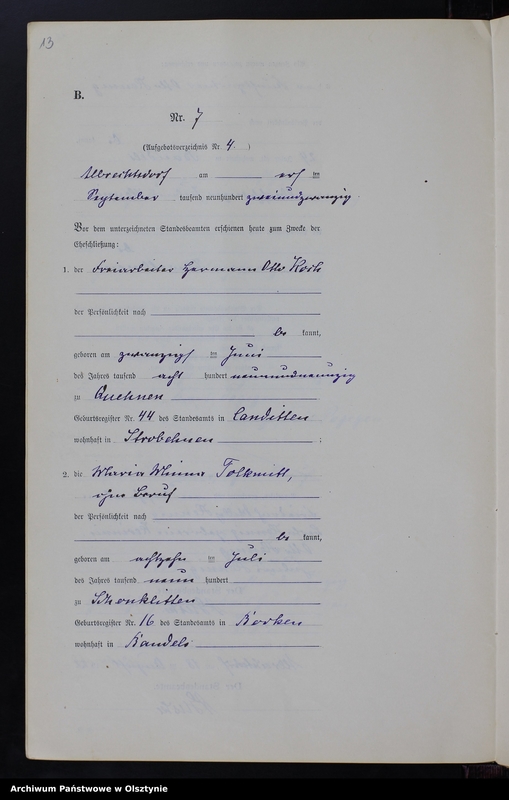 13
B.
Nr. 7
(Aufgebotsverzeichnis Nr. 4)
Albrechtsdorf am elf ten
September tausend neunhundert zweiundzwanzig.
Vor dem unterzeichneten Standesbeamten erschienen heute zum Zwecke der
Eheschließung:
1. der Freiarbeiter Hermann Otto Koch
der Persönlichkeit nach
be kannt,
geboren am zwanzigst ten Juni
des Jahres tausend acht hundert neunundneunzig
zu Quehnen
Geburtsregister Nr. 44 des Standesamts in Canditten
wohnhaft in Strobehnen ;
2. die Maria Minna Folkmitt,
ohne Beruf
der Persönlichkeit nach
be kannt,
geboren am achtzehn ten Juli
des Jahres tausend neun hundert
zu Schonklitten
Geburtsregister Nr. 16 des Standesamts in Borken
wohnhaft in Bandels
Archiwum Państwowe w Olsztynie